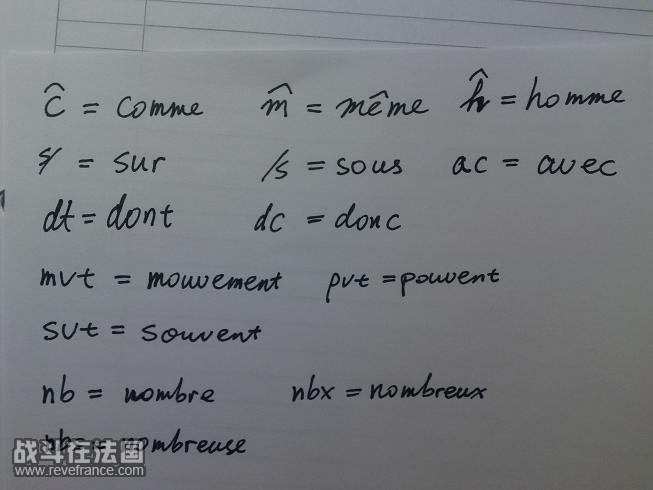 ĉ = comme m̂ = même ĥ = homme
s/ = sur /s = sous ac = avec
dt = dont dc = donc
mvt = mouvement pvt = pouvent
svt = souvent
nb = nombre nbx = nombreux
nombreuse
战斗在法国
www.revefrance.com